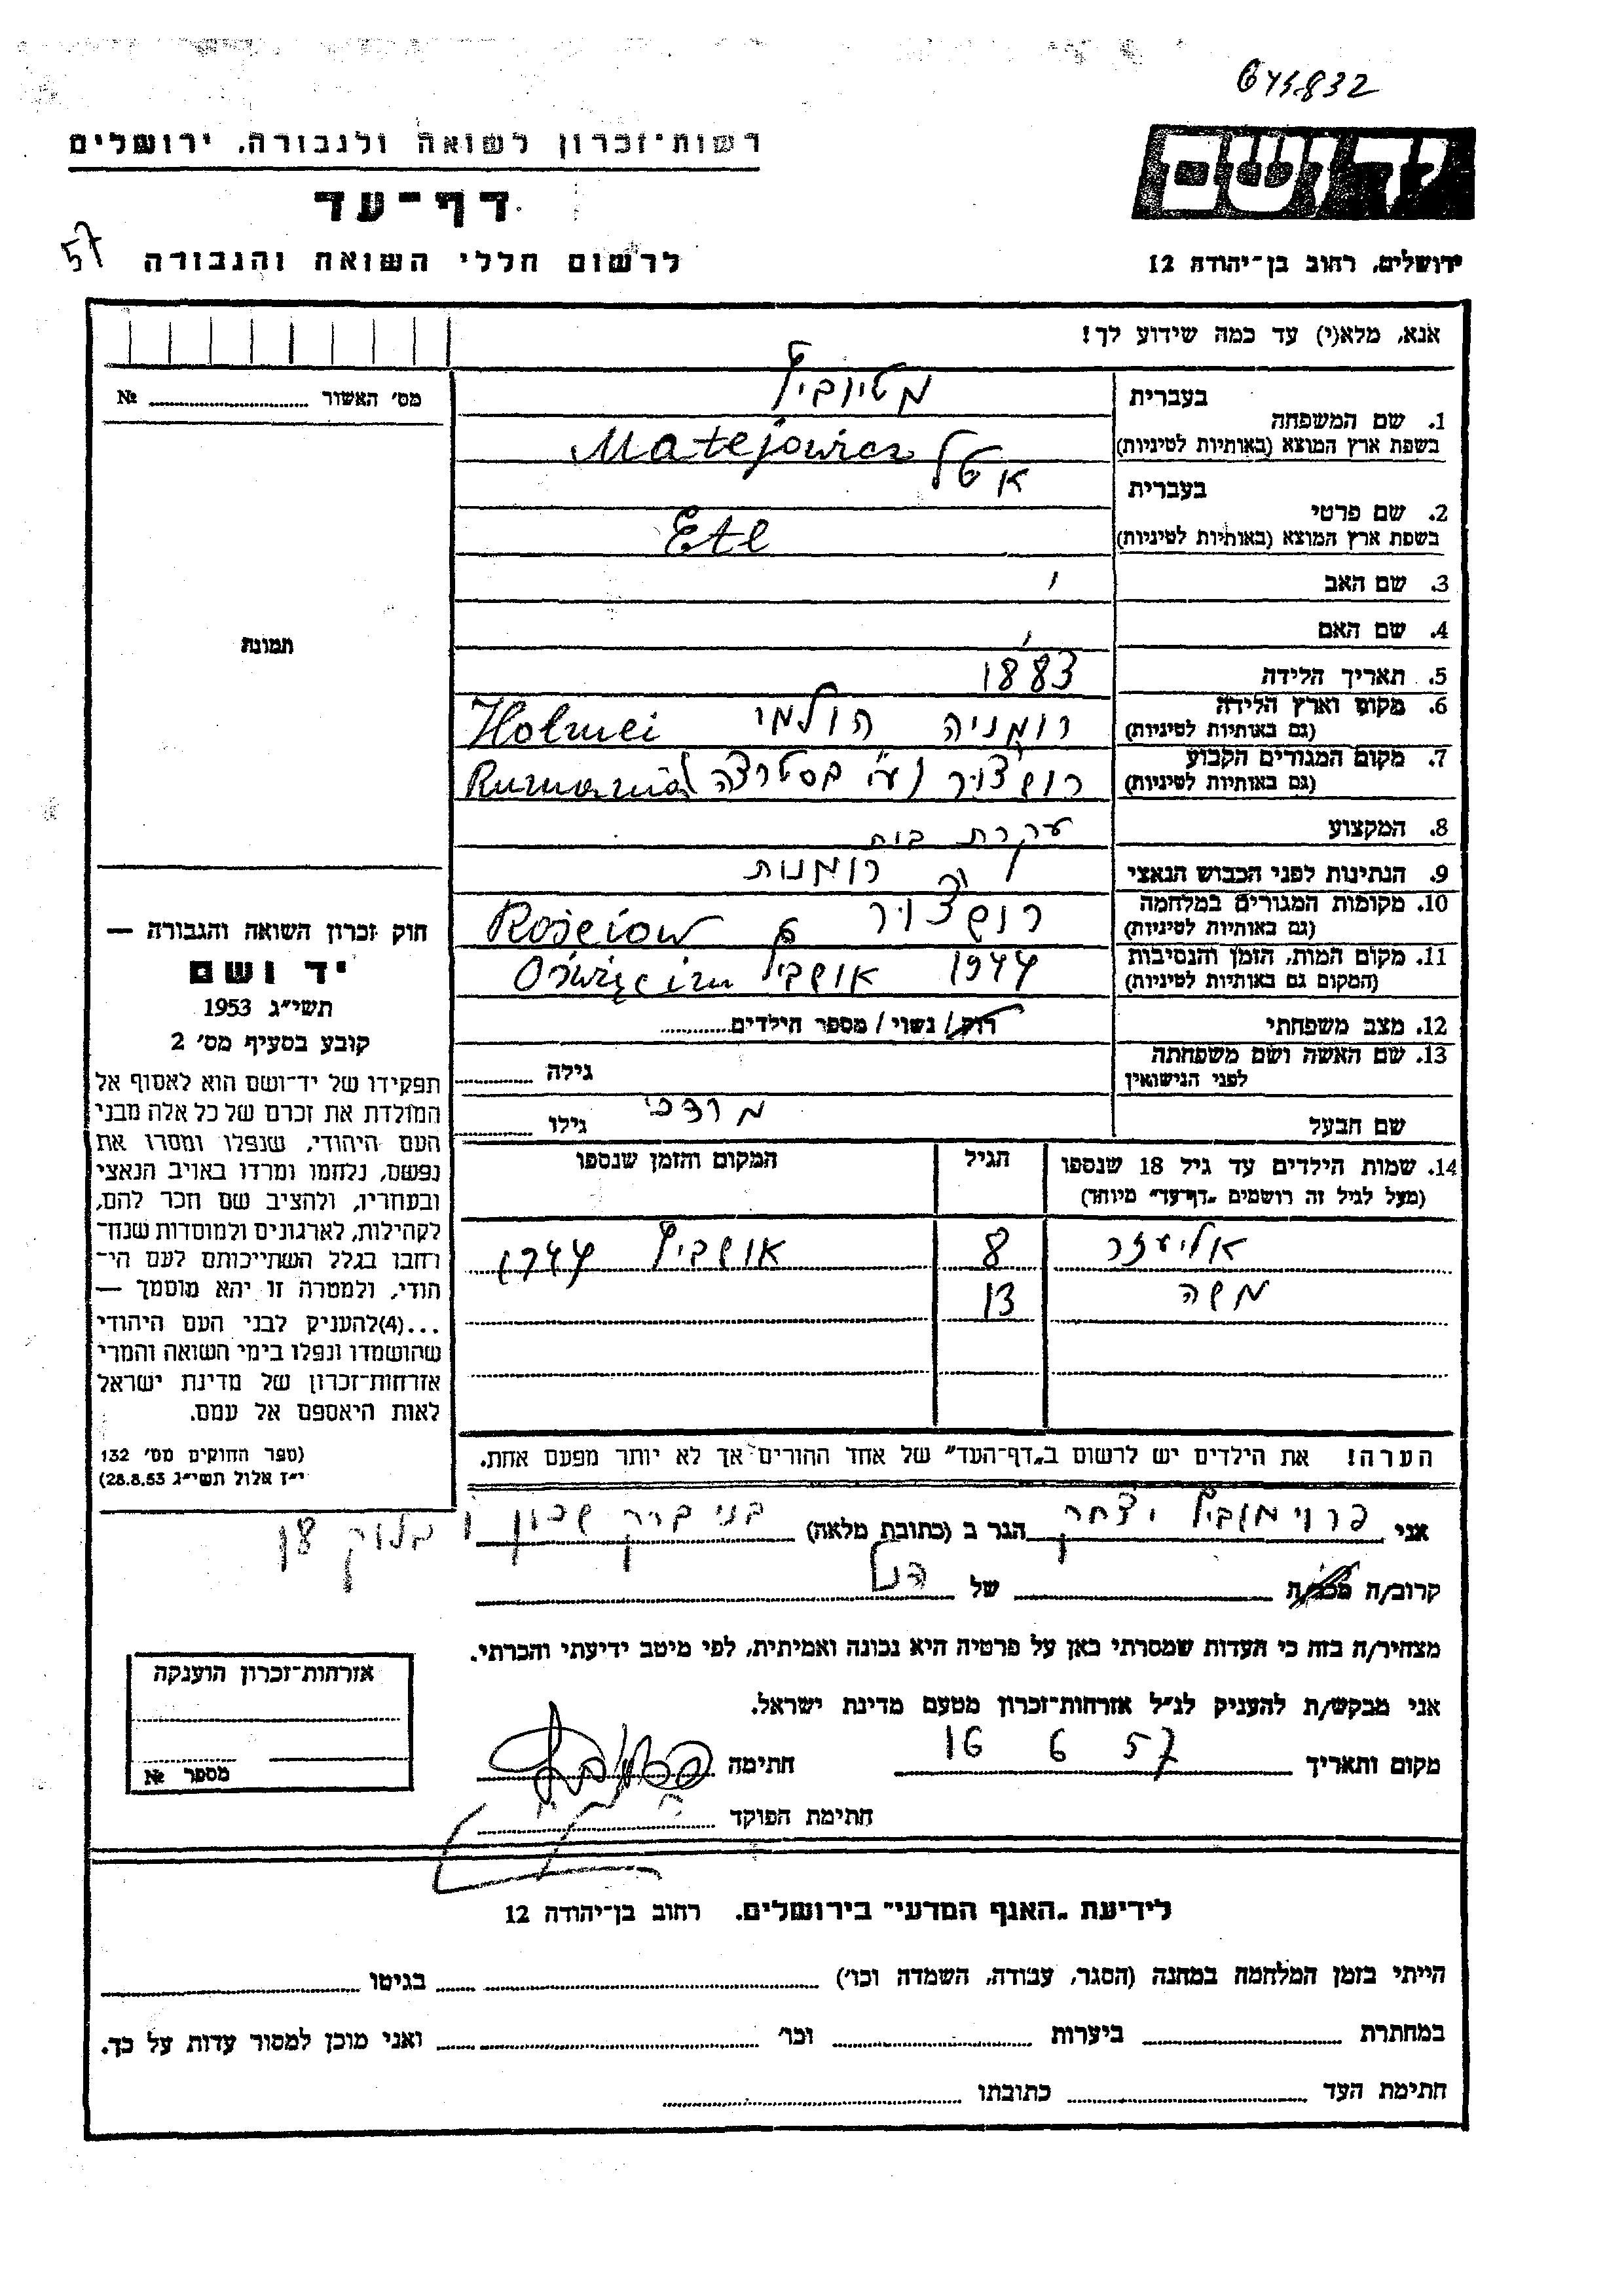 645832
רשות־זכרון לשואה ולגבורה. ירושלים
יד ושם
דף־עד
57
לרשום חללי השואה והגבורה
ירושלים, רחוב בן־יהודה 12
אנא, מלא(י) עד כמה שידוע לך!
מס׳ האשור № 
בעברית
1. שם המשפחה
בשפת ארץ המוצא (באותיות לטיניות)
Matejowicz
בעברית אטל
2. שם פרטי
בשפת ארץ המוצא (באותיות לטיניות)
Etl
3. שם האב
4. שם האם
תמונה
5. תאריך הלידה 1883
6. מקום וארץ הלידה
(גם באותיות לטיניות)
רומניה הולמי Holmei
7. מקום המגורים הקבוע
(גם באותיות לטיניות)
Rumania
8. המקצוע עקרת בית
9. הנתינות לפני הכבוש הנאצי רומנית
10. מקומות המגורים במלחמה
(גם באותיות לטיניות)
11. מקום המות, הזמן והנסיבות
(המקום גם באותיות לטיניות)
1944 אושביץ Oświęcim
12. מצב משפחתי רווק / נשוי / מספר הילדים
13. שם האשה ושם משפחתה
לפני הנישואין
גילה
שם הבעל מרדכי גילו
14. שמות הילדים עד גיל 18 שנספו
(מעל לגיל זה רושמים „דף־עד” מיוחד)
הגיל
המקום והזמן שנספו
אליעזר 8 אושביץ 1944
משה 13
חוק זכרון השואה והגבורה —
יד ושם
תשי״ג 1953
קובע בסעיף מס׳ 2
תפקידו של יד־ושם הוא לאסוף אל
המולדת את זכרם של כל אלה מבני
העם היהודי, שנפלו ומסרו את
נפשם, נלחמו ומרדו באויב הנאצי
ובעוזריו, ולהציב שם וזכר להם,
לקהילות, לארגונים ולמוסדות שנח־
רבו בגלל השתייכותם לעם הי־
הודי, ולמטרה זו יהא מוסמך —
...(4) להעניק לבני העם היהודי
שהושמדו ונפלו בימי השואה והמרי
אזרחות־זכרון של מדינת ישראל
לאות היאספם אל עמם.
(ספר החוקים מס׳ 132
י״ז אלול תשי״ג 28.8.53)
הערה! את הילדים יש לרשום ב„דף־העד” של אחד ההורים אך לא יותר מפעם אחת.
אני פרוימוביץ יצחק הגר ב (כתובת מלאה) בני ברק שכון ו בלוק
קרוב/ה מכר/ה של הנ״ל
מצהיר/ה בזה כי העדות שמסרתי כאן על פרטיה היא נכונה ואמיתית, לפי מיטב ידיעתי והכרתי.
אני מבקש/ת להעניק לנ״ל אזרחות־זכרון מטעם מדינת ישראל.
מקום ותאריך 16 6 57 חתימה
חתימת הפוקד
אזרחות־זכרון הוענקה
מספר №
לידיעת „האגף המדעי” בירושלים. רחוב בן־יהודה 12
הייתי בזמן המלחמה במחנה (הסגר, עבודה, השמדה וכו׳) בגיטו
במחתרת ביערות וכו׳ ואני מוכן למסור עדות על כך.
חתימת העד כתובתו